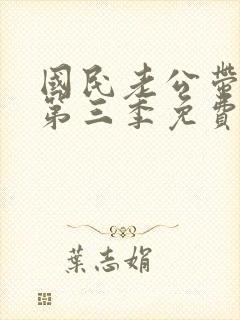 國民老公帶
第三季免費
葉志娟